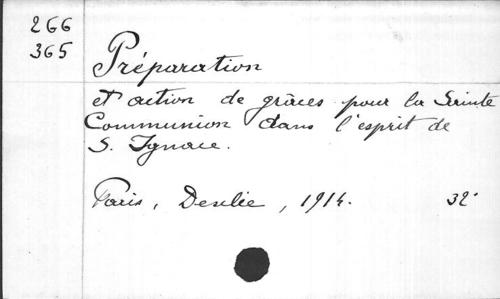 266
365
Préparation
et action de grâces pour la Sainte
Communion dans l'esprit de
S. Ignace.
Paris, Desclée, 1914. 32°